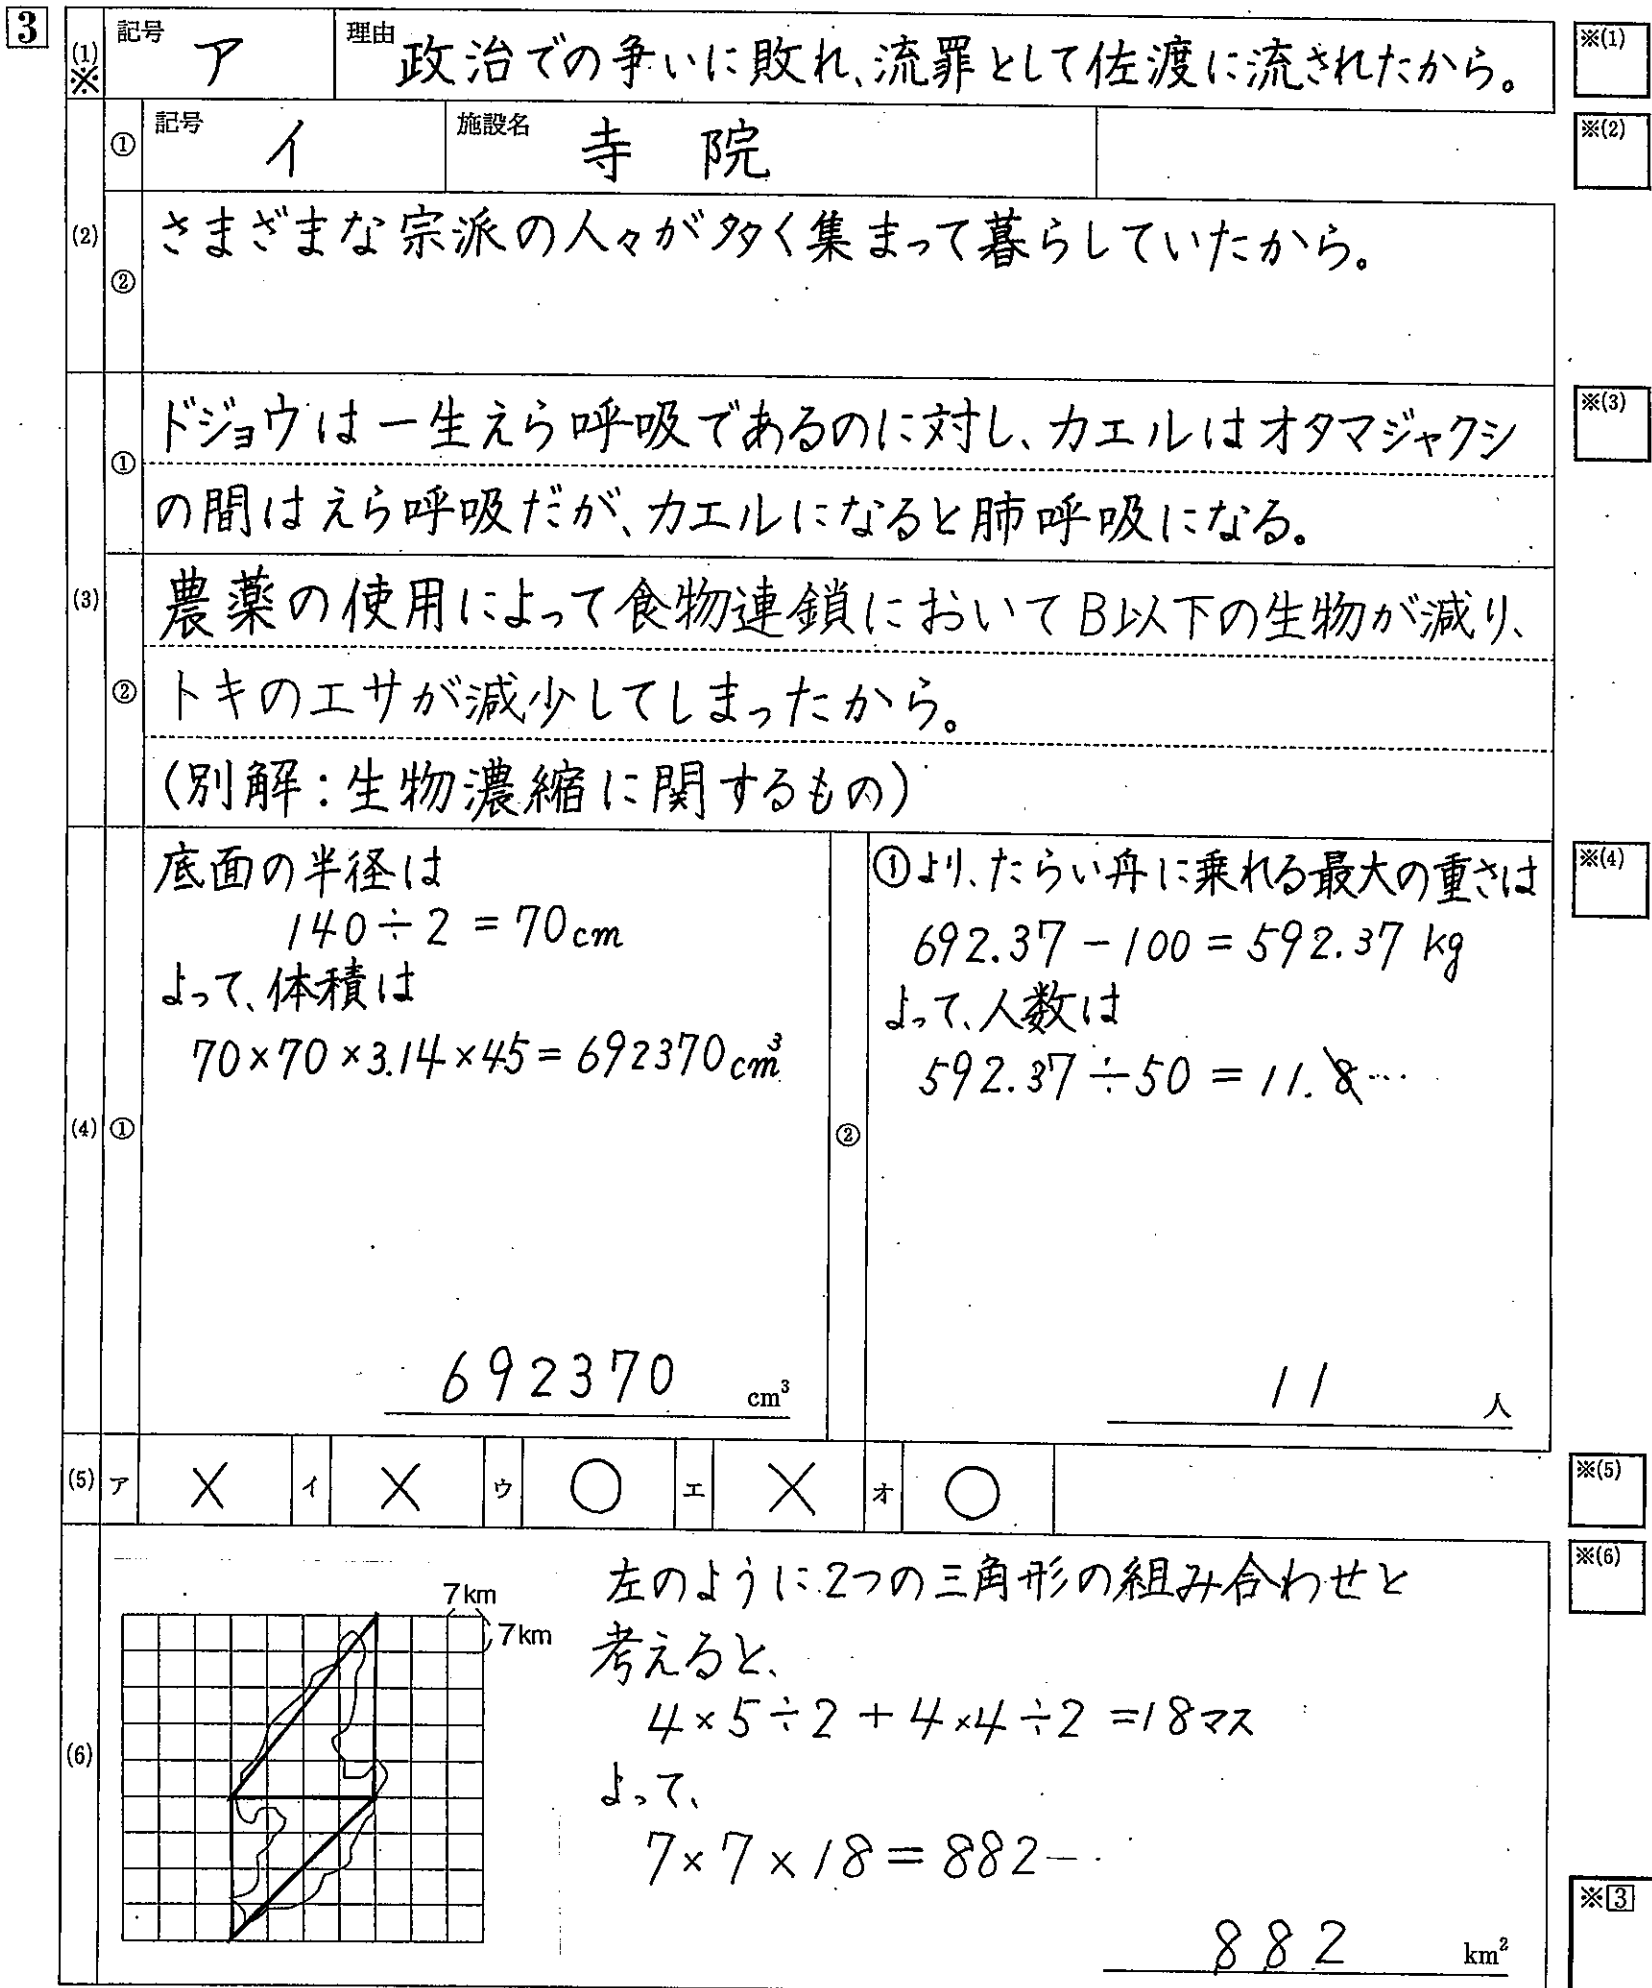 3
(1)
※
記号
ア
理由
政治での争いに敗れ、流罪として佐渡に流されたから。
※(1)
(2)
①
記号
イ
施設名
寺 院
※(2)
②
さまざまな宗派の人々が多く集まって暮らしていたから。
(3)
①
ドジョウは一生えら呼吸であるのに対し、カエルはオタマジャクシ
の間はえら呼吸だが、カエルになると肺呼吸になる。
※(3)
②
農薬の使用によって食物連鎖においてB以下の生物が減り、
トキのエサが減少してしまったから。
(別解:生物濃縮に関するもの)
(4)
①
底面の半径は
140÷2=70cm
よって、体積は
70×70×3.14×45=692370cm³
692370 cm³
②
①より、たらい舟に乗れる最大の重さは
692.37-100=592.37 kg
よって、人数は
592.37÷50=11.8…
11 人
※(4)
(5)
ア × イ × ウ ○ エ × オ ○
※(5)
(6)
7km
7km
左のように2つの三角形の組み合わせと
考えると、
4×5÷2+4×4÷2=18マス
よって、
7×7×18=882
882 km²
※(6)
※3